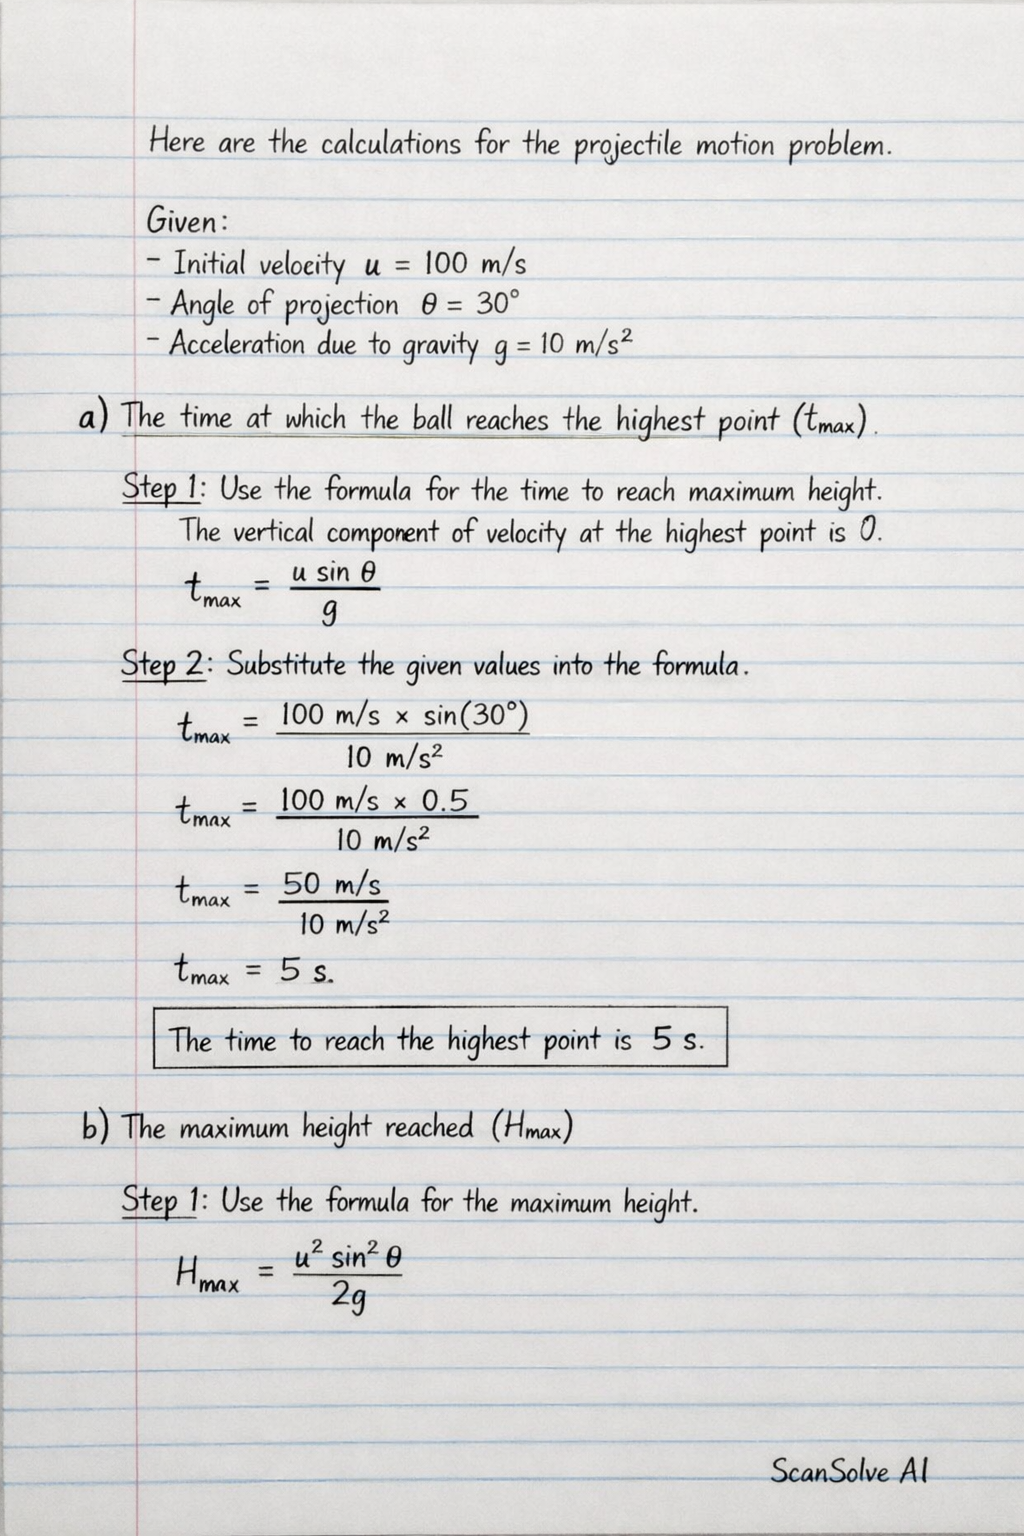 Here are the calculations for the projectile motion problem.
Given:
- Initial velocity u = 100 m/s
- Angle of projection θ = 30°
- Acceleration due to gravity g = 10 m/s²
a) The time at which the ball reaches the highest point (tmax).
Step 1: Use the formula for the time to reach maximum height.
The vertical component of velocity at the highest point is 0.
tmax = u sin θ / g
Step 2: Substitute the given values into the formula.
tmax = 100 m/s × sin(30°) / 10 m/s²
tmax = 100 m/s × 0.5 / 10 m/s²
tmax = 50 m/s / 10 m/s²
tmax = 5 s.
The time to reach the highest point is 5 s.
b) The maximum height reached (Hmax)
Step 1: Use the formula for the maximum height.
Hmax = u² sin² θ / 2g
ScanSolve AI